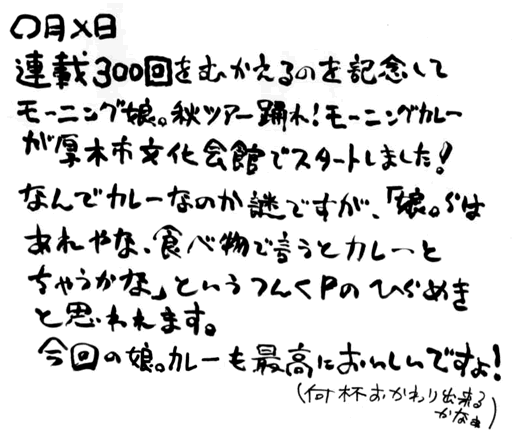 〇月×日
連載300回をむかえるのを記念して
モーニング娘。秋ツアー踊れ!モーニングカレー
が厚木市文化会館でスタートしました!
なんでカレーなのか謎ですが、「娘。らは
あれやな、食べ物で言うとカレーと
ちゃうかな」というつんくPのひらめき
と思われます。
今回の娘。カレーも最高においしいですよ!
(何杯おかわり出来る
かなぁ)